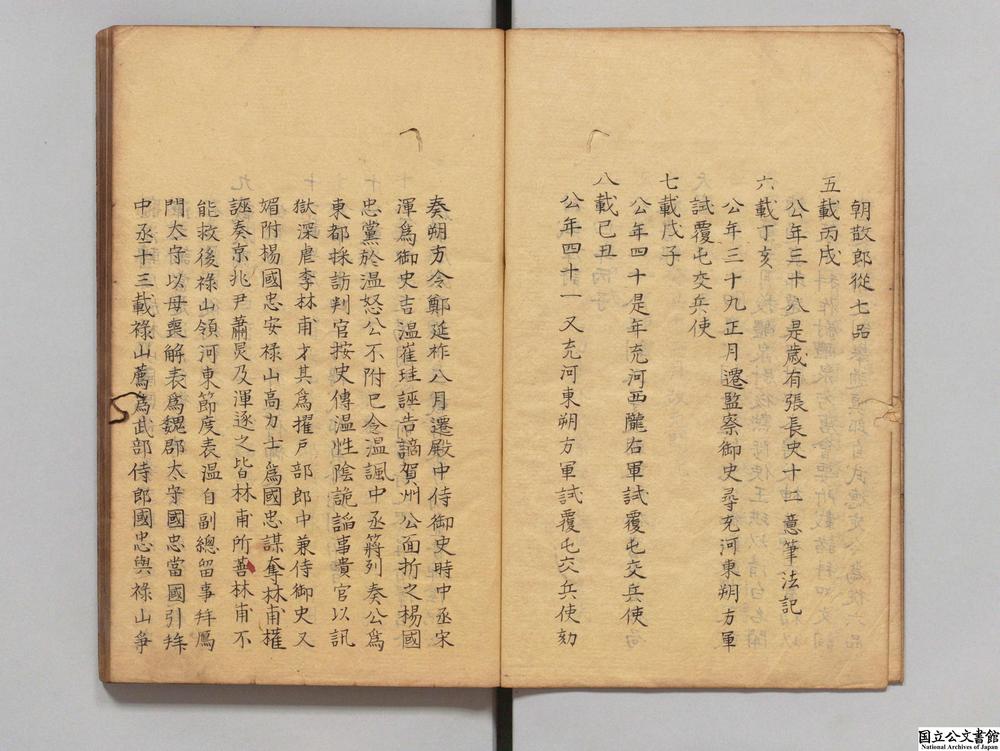 朝散郎從七品
五載丙戌
公年三十八是歲有張長史十二意筆法記
六載丁亥
公年三十九正月遷監察御史尋充河東朔方軍
試覆屯交兵使
七載戊子
公年四十是年充河西隴右軍試覆屯交兵使
八載己丑
公年四十一又充河東朔方軍試覆屯交兵使劾
奏朔方令鄭延祚八月遷殿中侍御史時中丞宋
渾為御史吉溫崔珪誣告謫賀州公面折之楊國
忠黨於溫怒公不附已念溫諷中丞蔣列奏公為
東都採訪判官按史傳溫性陰詭謟事貴官以訊
獄深虐李林甫才其為擢戶部郎中兼侍御史又
媚附楊國忠安祿山高力士為國忠謀奪林甫權
誣奏京兆尹蕭炅及渾逐之皆林甫所善林甫不
能救後祿山領河東節度表溫自副總留事拜鴈
門太守以母喪解表為魏郡太守國忠當國引拜
中丞十三載祿山薦為武部侍郎國忠與祿山爭
国立公文書館
National Archives of Japan